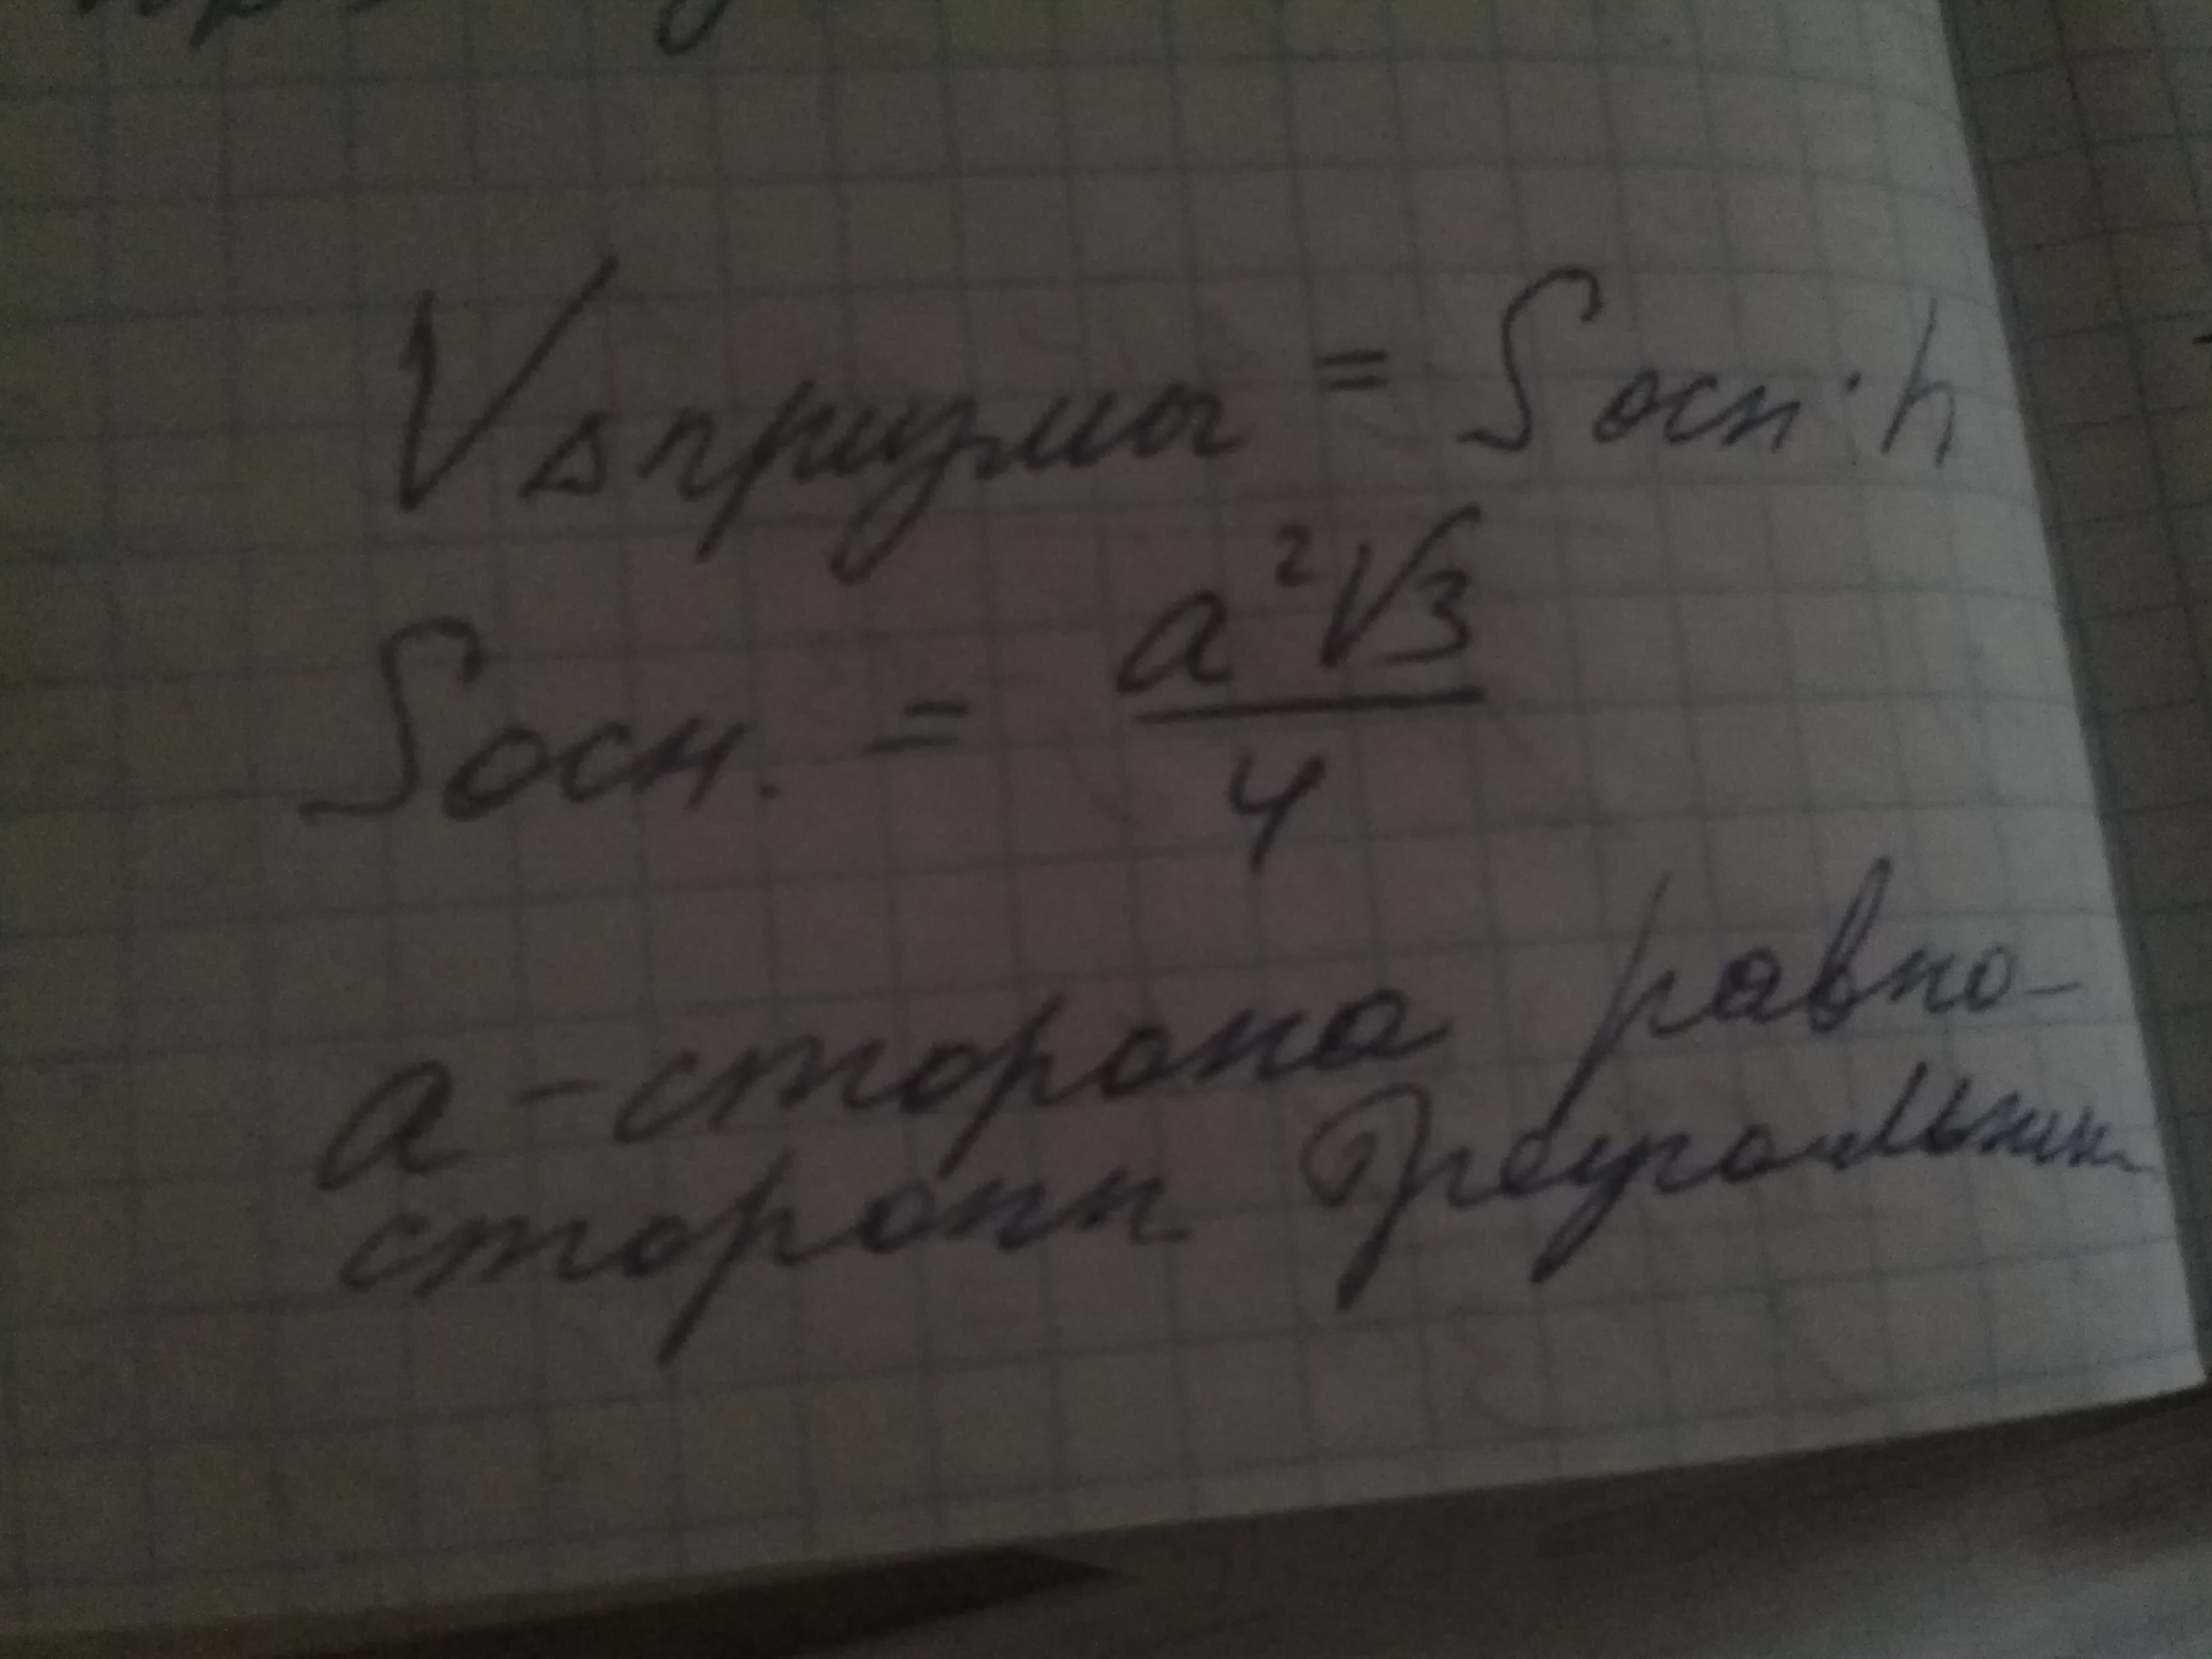 V △ призмы = S осн · h
S осн. = a²√3 / 4
a - сторона равно-
сторонн треугольник